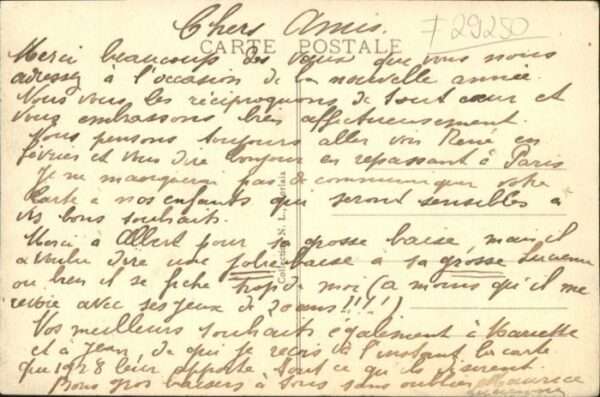 Chers Amis.
CARTE POSTALE
F 29250
Merci beaucoup des vœux que vous nous
adressez à l'occasion de la nouvelle année.
Nous vous les réciproquons de tout cœur et
vous embrassons bien affectueusement.
Nous pensons toujours aller voir René en
février et vous dire bonjour en repassant à Paris
Je ne manquerai pas de communiquer votre
carte à nos enfants qui seront sensibles à
vos bons souhaits.
Merci à Albert pour sa grosse baise, mais il
a voulu dire une jolie baise à sa grosse
ou bien il se fiche trop de moi (à moins qu'il me
revoie avec ses yeux de 20 ans!!!!)
Vos meilleurs souhaits également à Mariette
et à Jean, de qui je reçois à l'instant la carte
que 1928 leur apporte tout ce qu'ils désirent.
Bons gros baisers à tous sans oublier Maurice
Collection N. L.,